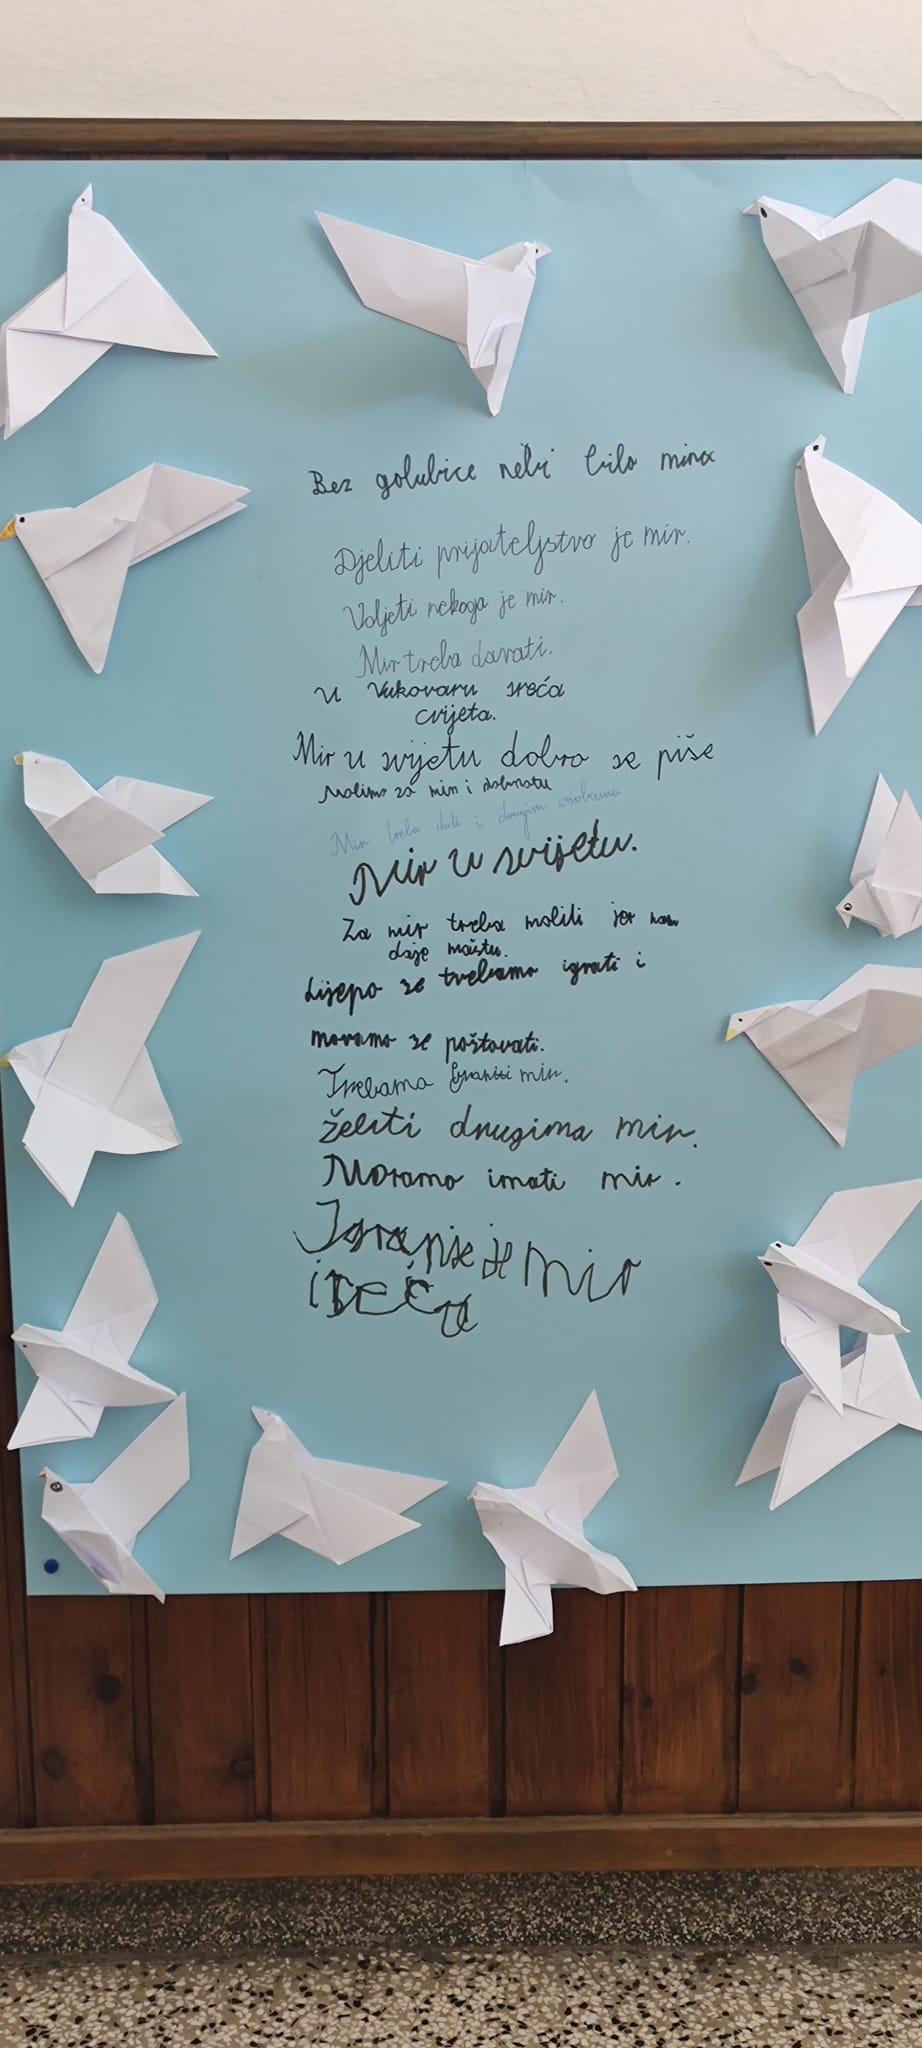 Bez golubice nebi bilo mira
Djeliti prijateljstvo je mir.
Voljeti nekoga je mir.
Mir treba davati.
U Vukovaru sreća
cvijeta.
Mir u svijetu dobro se piše
Molimo za mir i dobrotu
Mir treba dati i drugim osobama
Mir u svijetu.
Za mir treba moliti jer nam
daje maštu.
Lijepo se trebamo igrati i
moramo se poštovati.
Trebamo mir.
želiti drugima mir.
Moramo imati mir.
je mir